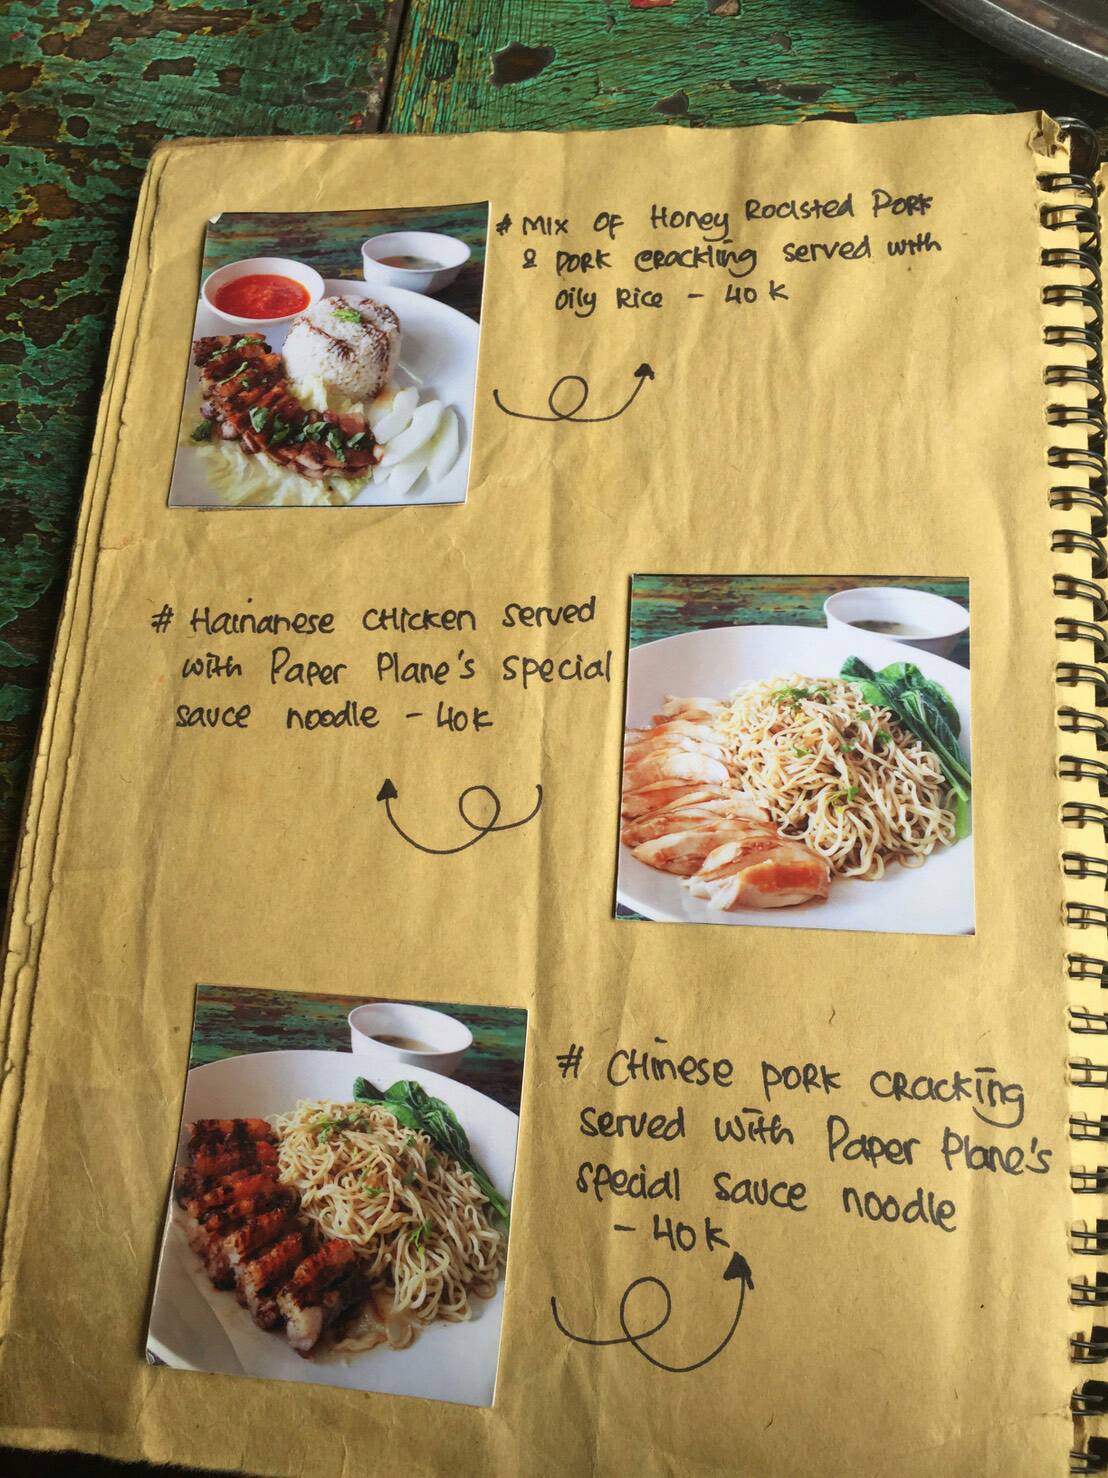 # Mix of Honey Roasted Pork
& pork crackling served with
oily Rice - 40K
# Hainanese chicken served
with Paper Plane's special
sauce noodle - 40K
# Chinese pork cracking
served with Paper Plane's
special sauce noodle
- 40K